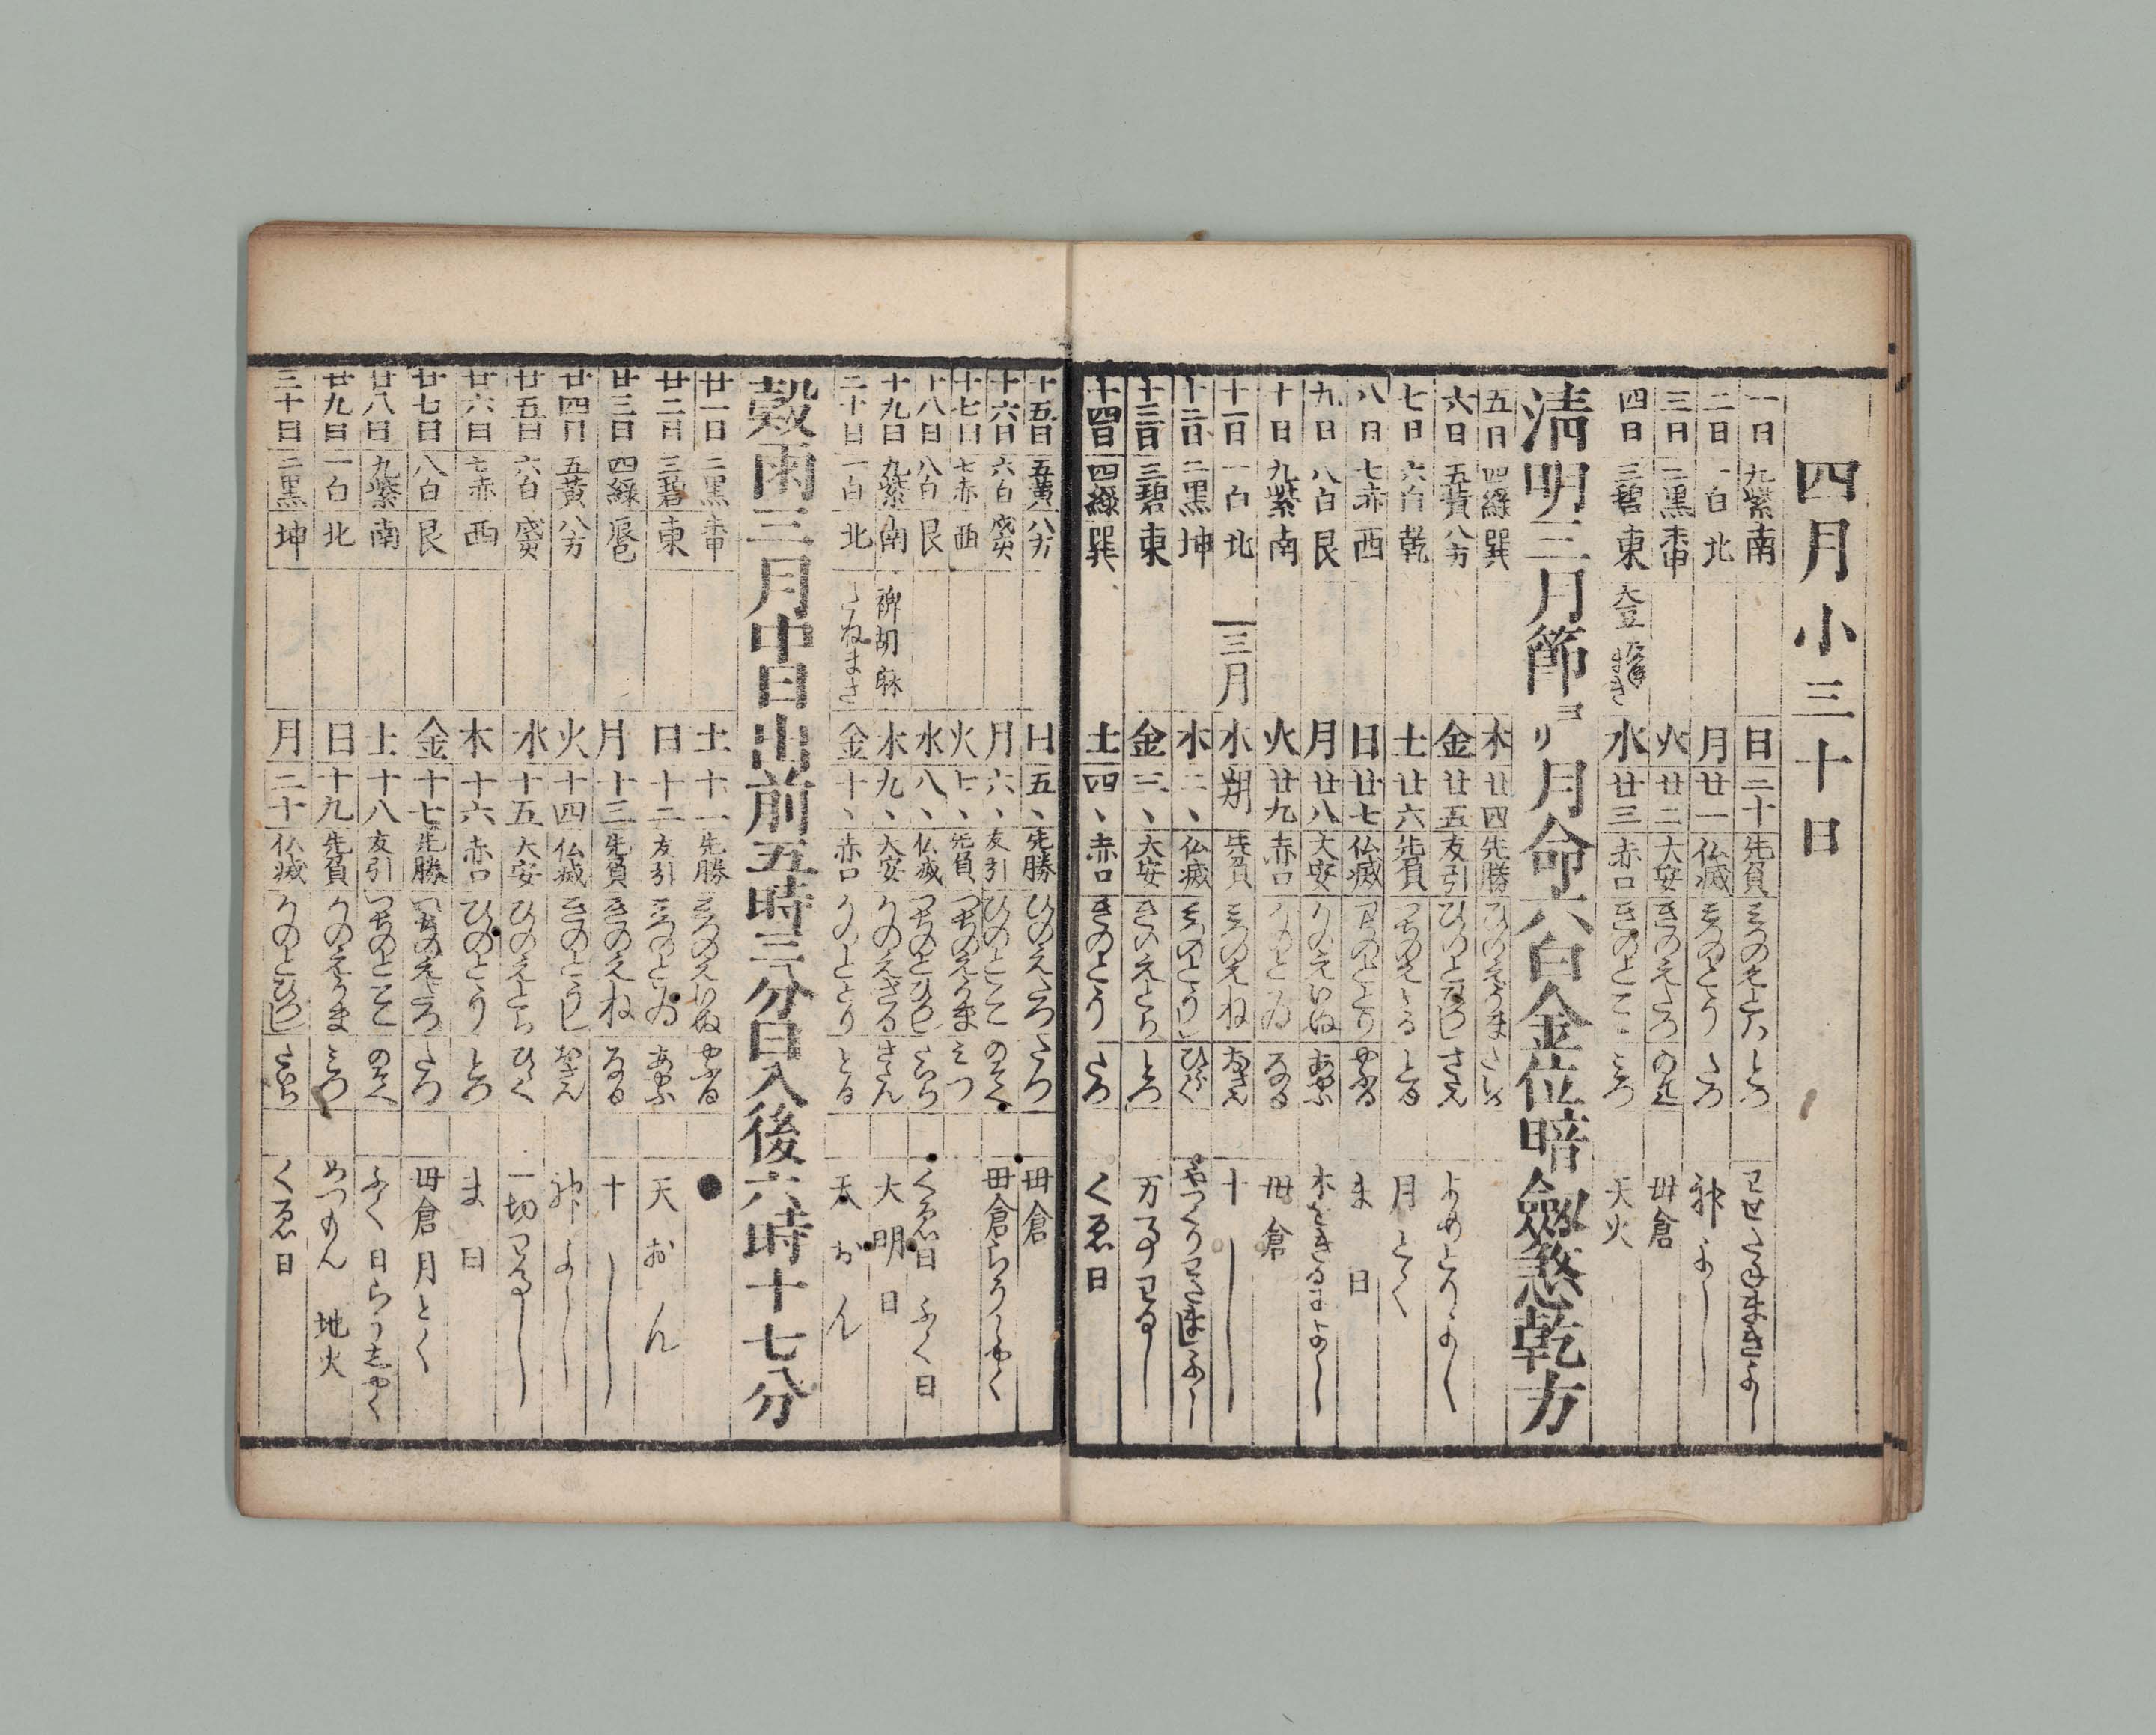 四月小三十日
一日 九紫 南 日 二十 先負 みつのえたつ とつ
二日 一白 北 月 廿一 仏滅 みつのとう たつ 神よし
三日 二黒 火 廿二 大安 きのえたつ のぞく 毌倉
四日 三碧 東 大豆 まき 水 廿三 赤口 きのとミ ミつ 天火
清明三月節ヨリ月命六白金位暗劔煞乾方
五日 四緑 巽 木 廿四 先勝 ひのえうま たいら
六日 五黄 八方 金 廿五 友引 ひのとひつじ さたん よめとりよし
七日 六白 乾 土 廿六 先負 つちのえさる とる 月とく
八日 七赤 西 日 廿七 仏滅 つちのととり やふる ま日
九日 八白 艮 月 廿八 大安 かのえいぬ あやふ
十日 九紫 南 火 廿九 赤口 かのとゐ なる 毌倉
十一日 一白 北 三月 水 朔 先負 みつのえね おさん 十し
十二日 二黒 坤 木 二、 仏滅 みつのとうし ひらく
十三日 三碧 東 金 三、 大安 きのえとら とつ 万
十四日 四緑 巽 土 四、 赤口 きのとう たつ くゑ日
十五日 五黄 八方 日 五、 先勝 ひのえたつ たつ 毌倉
十六日 六白 月 六、 友引 ひのとミ のそく 毌倉
十七日 七赤 西 火 七、 先負 つちのえうま ミつ
十八日 八白 艮 水 八、 仏滅 つちのとひつし たいら くゑ日 ふく日
十九日 九紫 南 稗胡麻 木 九、 大安 かのえさる さたん 大明日
二十日 一白 北 たねまき 金 十、 赤口 かのととり とる 天おん
穀雨三月中日出前五時三分日入後六時十七分
廿一日 二黒 土 十一 先勝 みつのえいぬ やふる ●
廿二日 三碧 東 日 十二 友引 みつのとゐ あやふ 天おん
廿三日 四緑 月 十三 先負 きのえね なる 十し
廿四日 五黄 八方 火 十四 仏滅 きのとうし おさん 神よし
廿五日 六白 水 十五 大安 ひのえとら ひらく 一切わるし
廿六日 七赤 西 木 十六 赤口 ひのとう とつ ま日
廿七日 八白 艮 金 十七 先勝 つちのえたつ たつ 毌倉 月とく
廿八日 九紫 南 土 十八 友引 つちのとミ のそく ふく日
廿九日 一白 北 日 十九 先負 かのえうま ミつ めつもん 地火
三十日 二黒 坤 月 二十 仏滅 かのとひつし たいら くゑ日